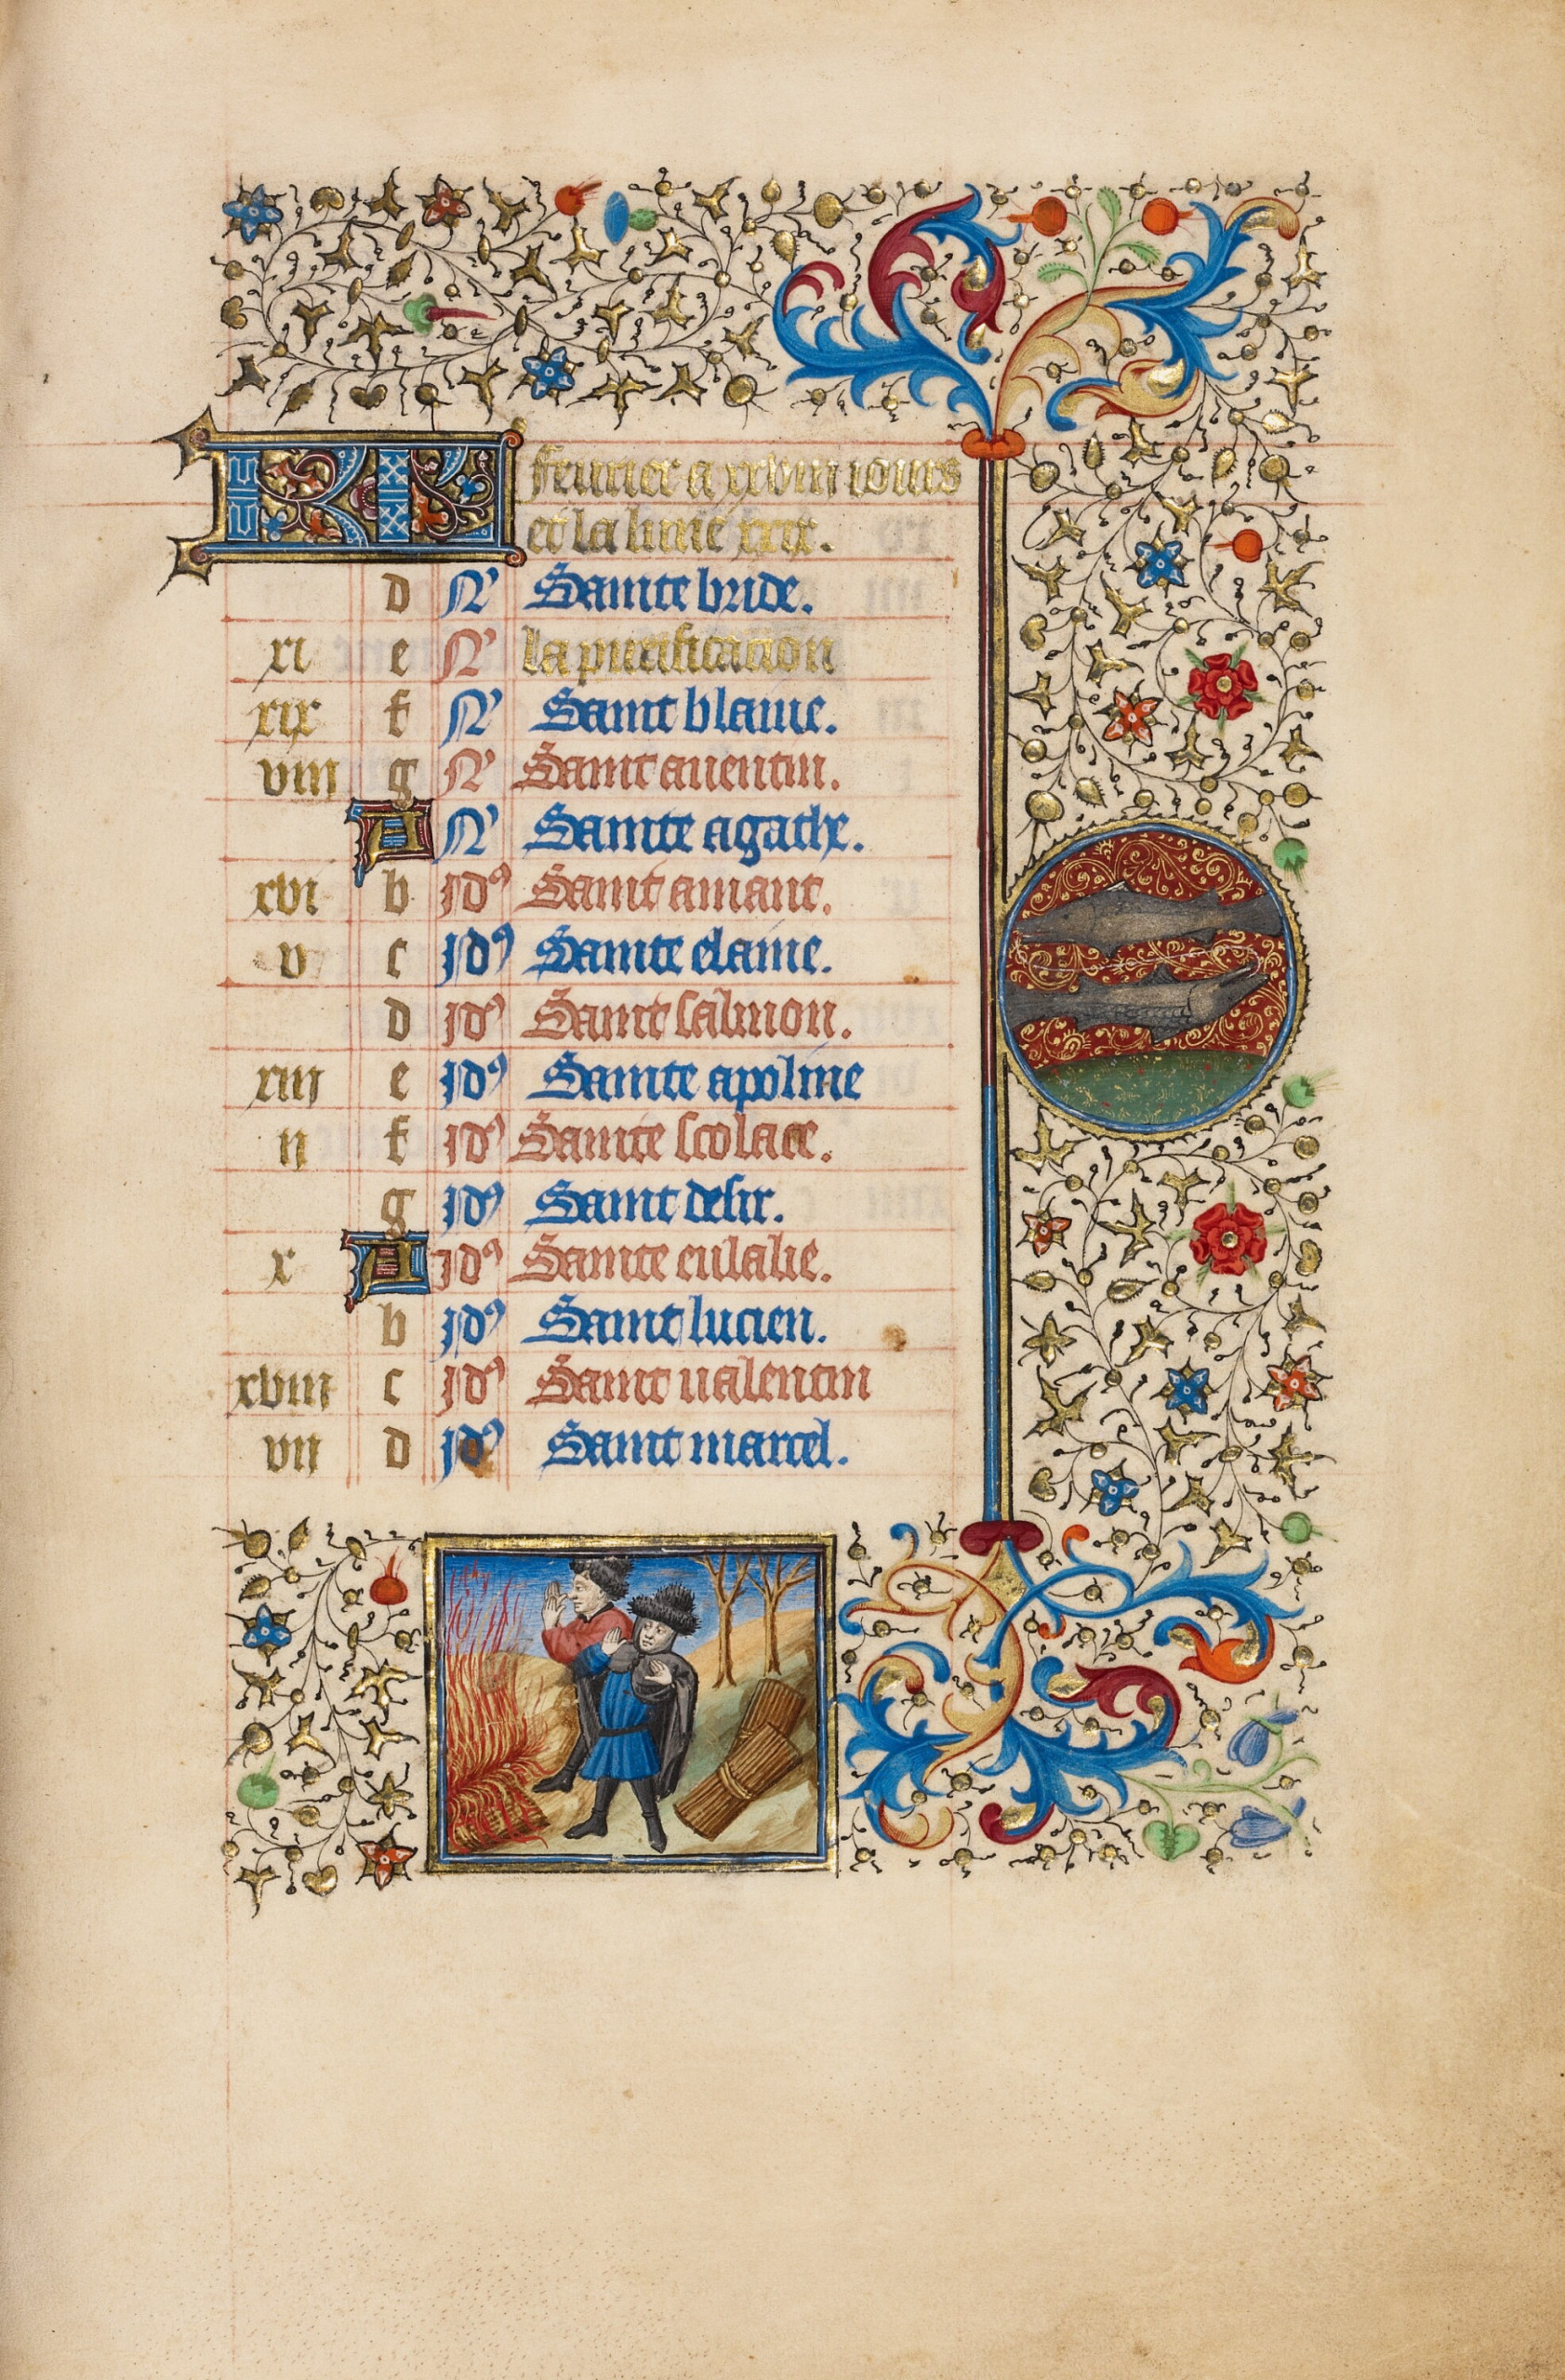 KL feurier a xxviii iours
et la lune xxix.
d N' Sainte bride.
xi e N' la purificacion
xix f N' Saint blaiue.
viii g N' Saint auentin.
A N' Sainte agathe.
xvi b Id9 Saint amant.
v c Id9 Sainte elaine.
d Id9 Saint salmon.
xiii e Id9 Sainte apoline
ii f Id9 Sainte scolace.
g Id9 Saint desir.
x A Id9 Sainte eulalie.
b Id9 Saint lucien.
xviii c Id9 Saint ualentin
vii d Id9 Saint marcel.